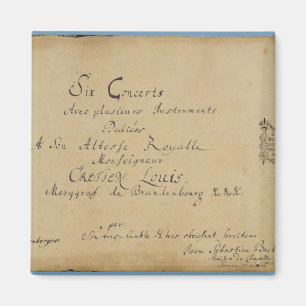 Six Concerts
Avec plusieurs Instruments
Dediées
A Son Altesse Royalle
Monseigneur
Cretien Louis.
Marggraf de Brandenbourg
par
Son tres-humble & tres obeissant serviteur
Jean Sebastien Bach